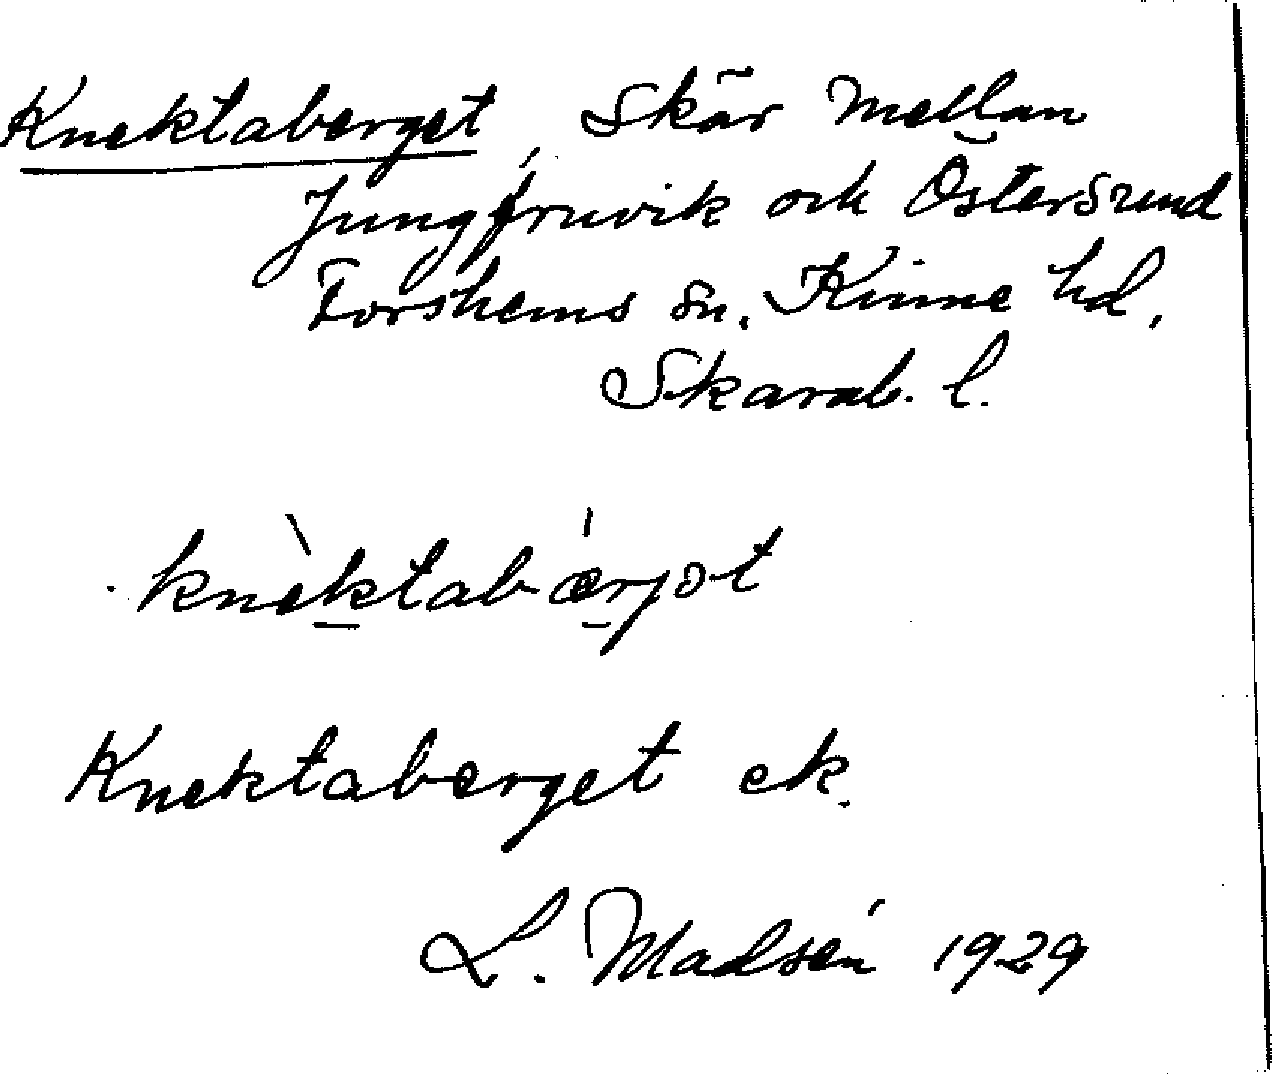 Knektaberget, Skär mellan
Jungfruvik och Östersund
Forshems sn. Kinne hd,
Skarab. l.
knèktabærjot
Knektaberget ek.
L. Madsén 1929